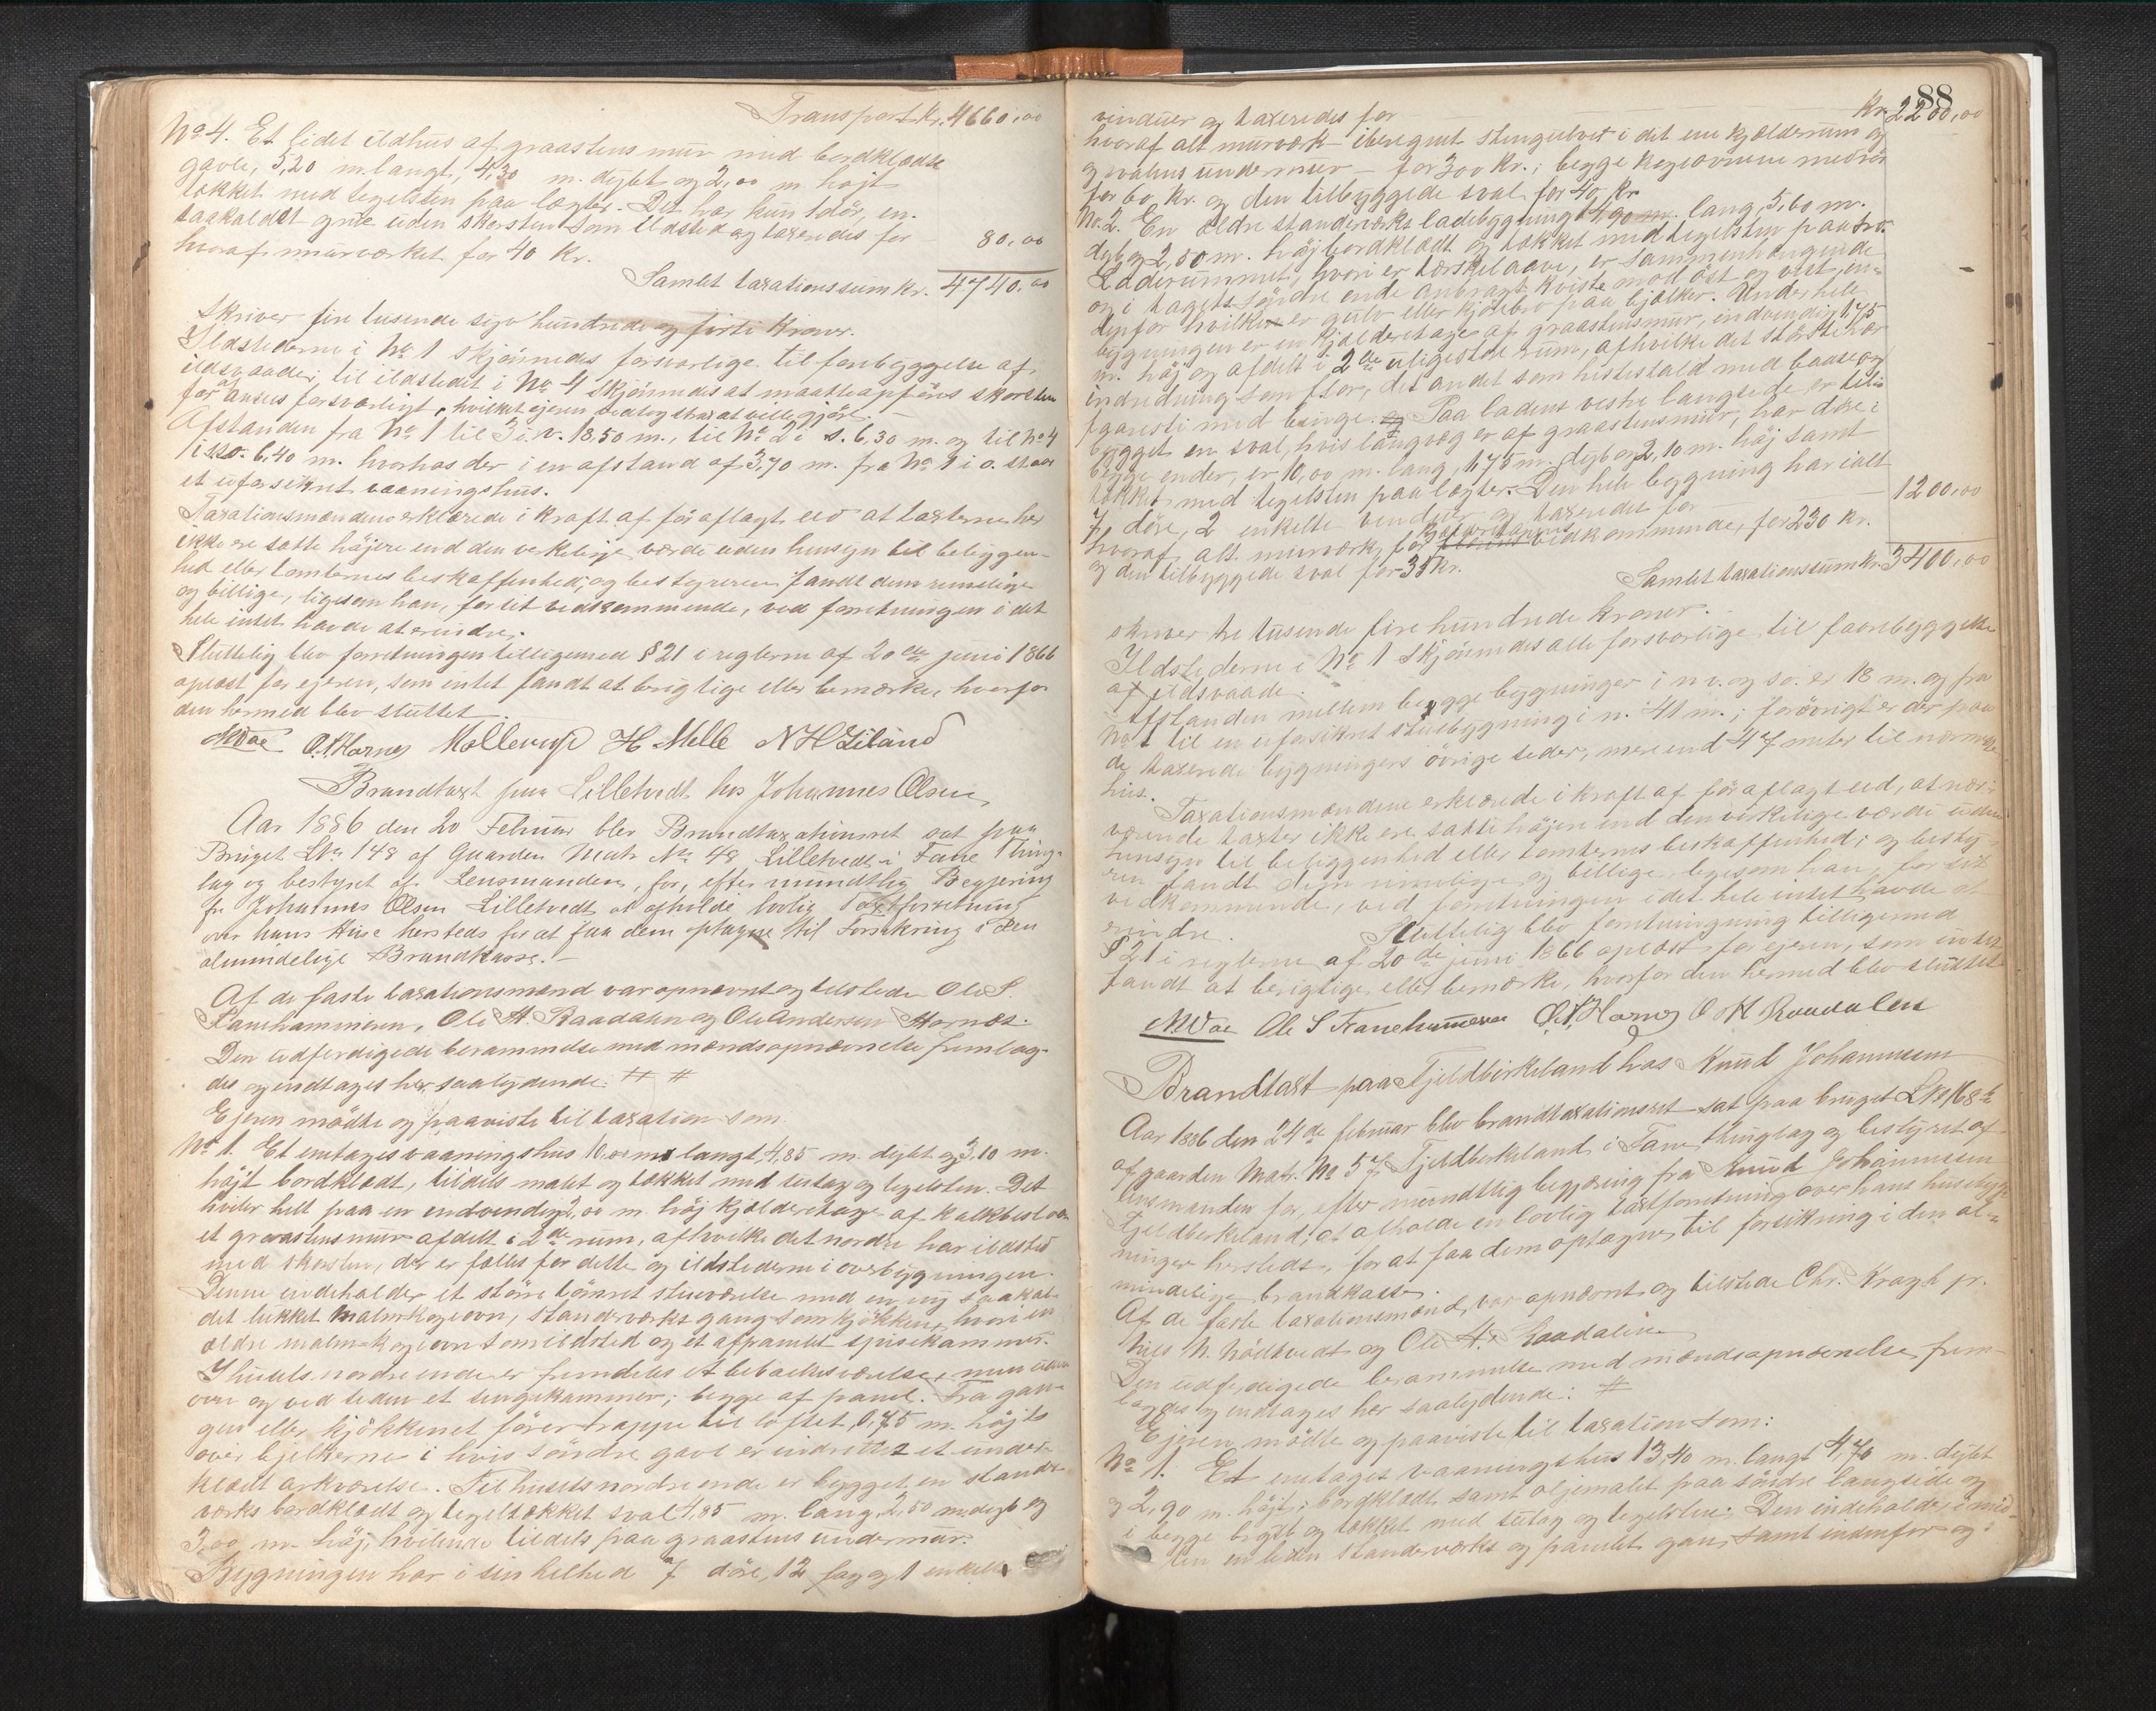 Transport Kr. 4660,00
No 4. Et lidet ildhus af graastens mur med bordklædte
gavle, 5,20 m. langt, 4,30 m. dybt og 2,00 m højt
tækket med tegelsten paa lægter. Det har kun 1 dör, en
saakaldet grue uden skorsten som ildsted og taxeredes for 80,00
hvoraf murværket for 40 Kr.
Samlet taxationssum kr. 4740,00
Skriver fire tusende syv hundrede og firti Kroner.
Ildstederne i No 1 skjönnedes forsvarlige til forebyggelse af
ildsvaade; til ildstedet i No 4 skjönnedes at maatte opföres skorsten
for at ansees forsvarligt, hvilket ejeren vedtog strax at ville gjöre.
Afstanden fra No 1 til 3 i v. 18,50 m., til No 2 i s. 6,30 m. og til No 4
i sso. 6,40 m. hvorhos der i en afstand af 3,70 m. fra No 1 i o. staar
et uforsikret vaaningshus.
Taxationsmændene erklærede i kraft af för aflagt eed at taxterne her
ikke ere satte höjere end den verkelige værde uden hensyn til beliggen-
hed eller tomternes beskaffenhed; og bestyreren fandt dem rimelige
og billige, ligesom han, for sit vedkommende, ved forretningen i det
hele intet havde at erindre.
Sluttelig blev forretningen tilligemed § 21 i reglerne af 20de juni 1866
oplæst for ejeren, som intet fandt at berigtige eller bemærke, hvorfor
den hermed blev sluttet.
O. Hornes Mollerup H Melle N H Liland
Brandtaxt paa Lilletvedt hos Johannes Olsen
Aar 1886 den 20 Februar blev Brandtaxationsret sat paa
Bruget LNo 148 af Gaarden Matr No 48 Lilletvedt i Fane Thing-
lag og bestyret af Lensmanden, for, efter mundtlig Begjæring
fra Johannes Olsen Lilletvedt at afholde lovlig Taxtforretning
over hans Huse hersteds for at faa dem optagne til Forsikring i den
almindelige Brandkasse.-
Af de faste taxationsmænd var opnævnt og tilstede Ole S.
Fanehammeren, Ole H. Raadalen og Ole Andersen Hornæs.
Den udferdigede berammelse med mændsopnævnelse fremlag-
des og indtages her saalydende: # #
Ejeren mödte og paaviste til taxation som:
No 1. Et enetages vaaningshus 10,00 m langt, 4,85 m. dybt og 3,10 m.
höjt bordklædt, tildels malet og tækket med sutag og tegelsten. Det
hviler helt paa en endvendig 2,00 m. höj kjælderetage af kalkbestrøg-
et graastensmur afdelt i 2de rum, afhvilke det nordre har ildsted
med skorsten, der er fælles for dette og ildstederne i overbygningen.
Denne indeholder et större tömret stueværelse med en ny saakal-
det lukket malmkogeovn, standerværks gang som kjökken, hvori en
ældre malm-kogeovn som ildsted og et afpanelet spisekammer.
I husets nordre ende er fremdeles et beboelsesværelse, men uden
ovn og ved siden et sengekammer; begge af panel. Fra gan-
gen eller kjökkenet förer trappe til loftet, 0,75 m. höjt
over bjelkerne i hvis söndre gavl er indrettet et under-
klædt arkværelse. Til husets nordre ende er bygget en stander-
værks bordklædt og tegeltækket sval 4,85 m. lang, 2,50 m. dyb og
3,00 m. höj, hvilende tildels paa graastens undermur.
Bygningen har i sin helhed 7 döre, 12 fag og 1 enkelt
88
vinduer og taxeredes for Kr. 2200,00
hvoraf alt murværk iberegnet stengulvet i det ene kjælderrum og
og svalens undermur - for 300 kr.; begge kogeovnene med rör
for 60 kr. og den tilbyggede sval for 40 kr
No. 2. En ældre standerværks ladebygning 14,90 m. lang, 5,60 m.
dyb og 2,50 m. höj bordklædt og tækket med tegelsten paa tro.
Laderummet, hvori er tærskelaave, er sammenhængende
og i tagets söndre ende anbragt kviste mod öst og vest, in-
denfor hvilken er gulv eller kjörebro paa bjælker. Under hele
bygningen er en kjælderetage af graastensmur, indvendig 1,75
m. höj og afdelt i 2de uligestore rum, afhvilke det störste har
indredning som flor, det andet som hestestald med baase og
faaresti med binge. Paa ladens vestre langside er til-
bygget en sval, hvis langvæg er af graastensmur, har döre i
begge ender, er 10,00 m. lang, 1,75 m. dyb og 2,10 m. höj samt
tækket med tegelsten paa lægter. Den hele bygning har ialt
7 döre, 2 enkelte vinduer og taxeredes for 1200,00
hvoraf alt murværk, for kjælderetagens vedkommende, for 230 kr.
og den tilbyggede sval for 35 kr.
Samlet taxationssum kr. 3400,00
skriver tre tusende fire hundrede kroner.
Ildstederne i No 1 skjönnedes alle forsvarlige til forebyggelse
af ildsvaade.
Afstanden mellem begge bygninger i nv. og so. er 18 m. og fra
No 1 til en uforsikret stuebygning i n. 41 m.; forövrigt er der paa
de taxerede bygningers övrige seder, mere end 47 meter til nærmeste
hus.
Taxationsmændene erklærede i kraft af för aflagt eed, at nær-
værende taxter ikke ere satte höjere end den virkelige værdi uden
hensyn til beliggenhed eller tomternes beskaffenhed; og besty-
ren fandt dem rimelige og billige, ligesom han, for sit
vedkommende, ved forretningen i det hele intet havde at
erindre. Sluttelig blev forretningning tilligemed
§ 21 i reglerne af 20de juni 1866 oplæst for ejeren, som intet
fandt at berigtige eller bemærke, hvorfor den hermed blev sluttet
Ole S Fanehammeren O. Hornes O H Raadalen
Brandtaxt paa Fjeldbirkeland hos Knud Johannesen
Aar 1886 den 24de februar blev brandtaxationsret sat paa bruget LNo 168
af gaarden Matr. No 57 Fjeldberkeland i Fane thinglag og bestyret af
lensmanden for, efter mundtlig begjæring fra Knud Johannesen
Fjeldberkeland, at afholde en lovlig taxtforretning over hans husebyg-
ninger hersteds, for at faa dem optagne til forsikring i den al-
mindelige brandkasse.
Af de faste taxationsmænd var opnævnt og tilstede Chr. Kragh jr.
Nils N. Hödtvedt og Ole H. Raadalen
Den udferdigede berammelse med mændsopnævnelse frem-
lagdes og endtages her saalydende: #
Ejeren mödte og paaviste til taxation som:
No 1. Et enetages vaaningshus 13,40 m. langt 4,70 m. dybt
og 2,90 m. höjt; bordklædt samt oljemalet paa söndre langside og
i begge brÿst og tækket med sutag og tegelsten. Den indeholder i mid-
ten en liden standerværks og panelet gang samt indenfor og